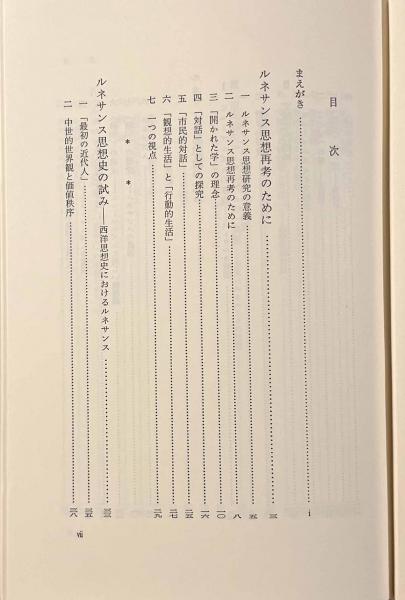 目次
まえがき……i
ルネサンス思想再考のために……三
一 ルネサンス思想研究の意義……五
二 ルネサンス思想再考のために……八
三 「開かれた学」の理念……一〇
四 「対話」としての探究……一六
五 「市民的対話」……二五
六 「観想的生活」と「行動的生活」……二七
七 一つの視点……二九
＊ ＊
ルネサンス思想史の試み——西洋思想史におけるルネサンス……三三
一 「最初の近代人」……三五
二 中世的世界観と価値秩序……三八
vii